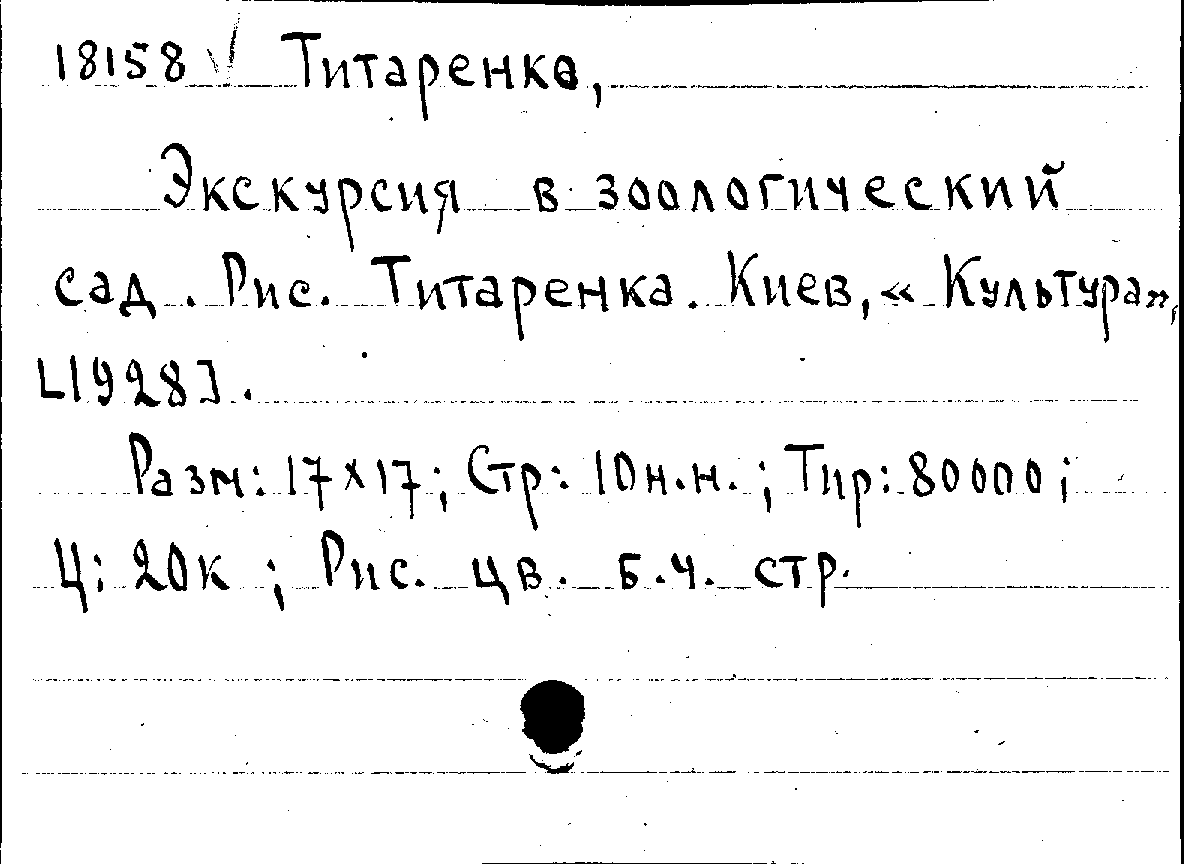 18158 ✓ Титаренко,
Экскурсия в зоологический
сад. Рис. Титаренка. Киев, «Культура»,
[1928].
Разм: 17×17; Стр: 10 н.н.; Тир: 80000;
Ц: 20к; Рис. цв. б.ч. стр.